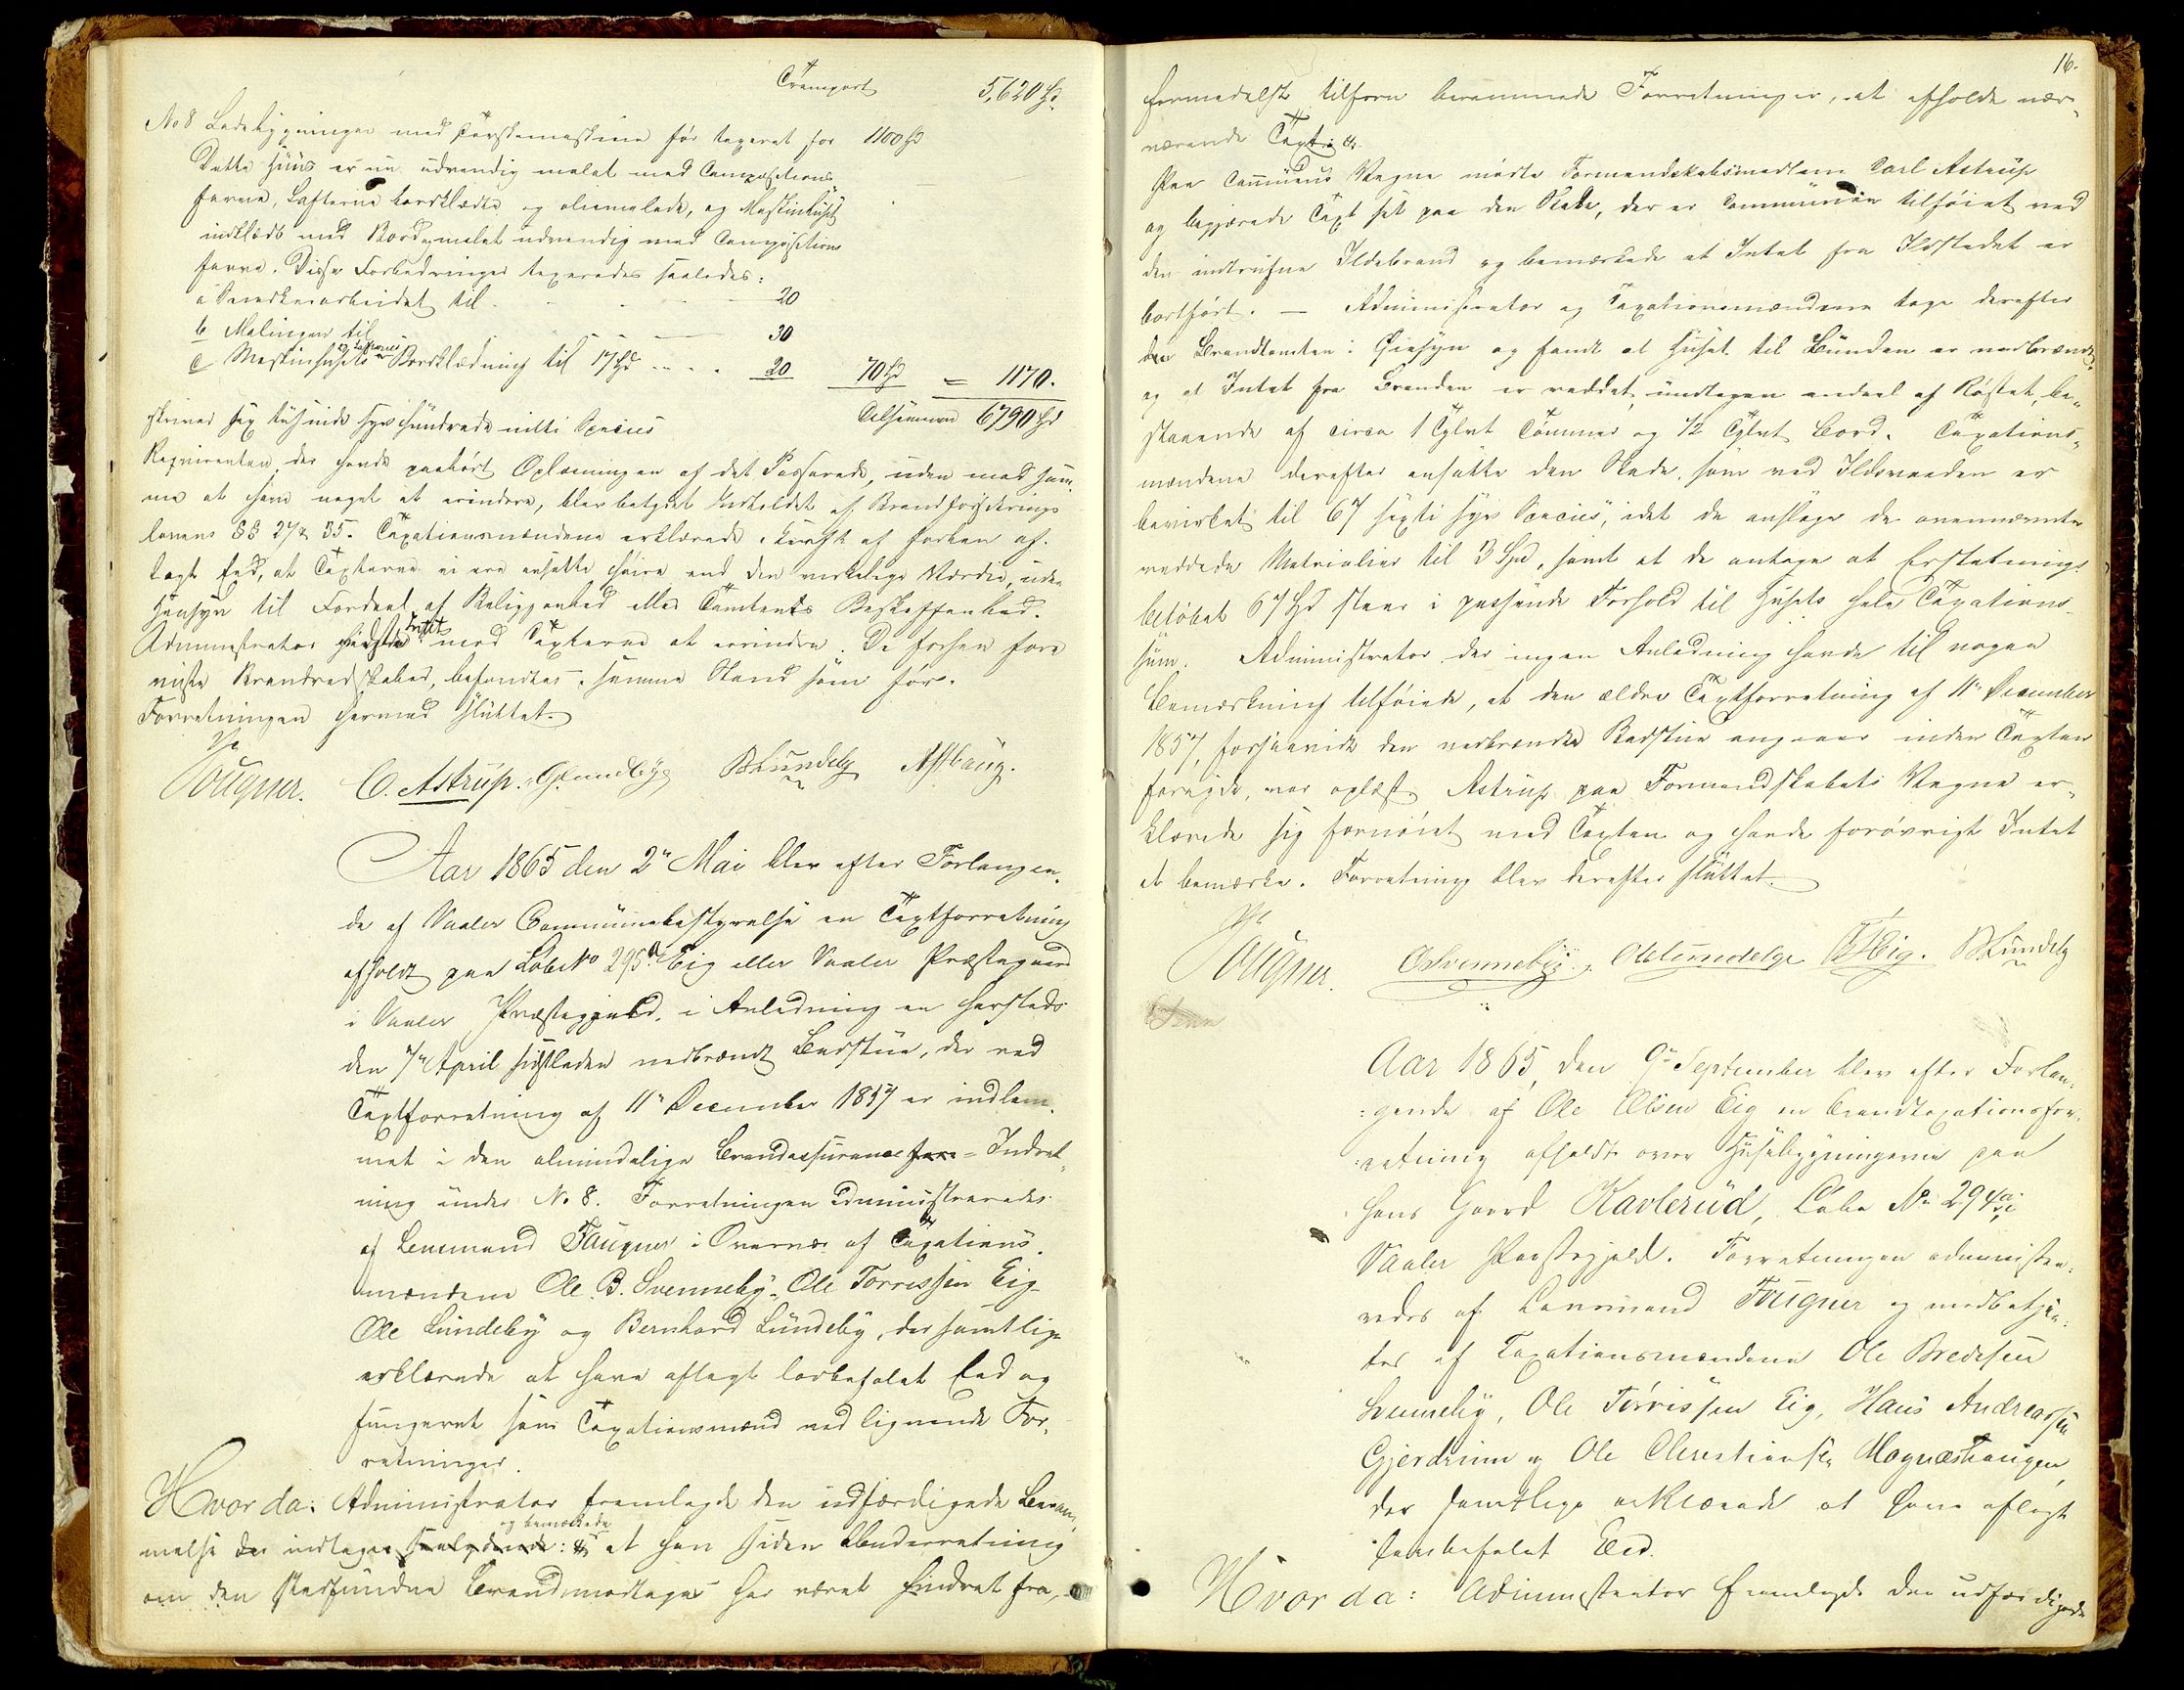 Transport 5,620 Spd
No 8 Ladebygningen med Tærskemaskine før taxeret for 1100 Spd
Dette Huus er nu udvendig malet med Compositions
farve, Lofterne bordklædte og oliemalede, og Maskinhuset
indklædt med Bord, malet udvendig med Compositions
farve. Disse Forbedringer taxeredes saaledes:
a Snedkerarbeidet til 20
b Malingen til 30
c Maskinhusets Bordklædning til 17 Spd 20 70 Spd = 1170.
skriver sex tusinde syv hundrede nitti Species Tilsammen 6790 Spd
Requirenten, der havde paahørt Oplæsningen af det Passerede, uden mod sam-
me at have noget at erindre, blev betydet Indholdet af Brandforsikrings
lovens §§ 27 & 35. Taxationsmændene erklærede i Kraft af forhen af-
lagt Eed, at Taxterne ei ere ansatte høire end den virkelige Værdie, uden
Hensyn til Fordeel af Beliggenhed eller Tomtens Beskaffenhed.
Administrator havde Intet mod Taxterne at erindre. De forhen fore
viste Brandredskaber, befandtes i samme Stand som før.
Forretningen hermed sluttet.
Fougner. C. Astrup. O Lundeby BLundeby AHaug.
Aar 1865 den 2n Mai blev efter Forlangen-
de af Vaaler Communebestyrelse en Taxtforretning
afholdt paa Løbe No 295a Eig eller Vaaler Præstegaard
i Vaaler Præstegjeld, i Anledning en harsteds
den 7n April sidstleden nedbrændt Badstue, der ved
Taxtforretning af 11n December 1857 er indlem-
met i den almindelige Brandassurance for- Indret-
ning under No 8. Forretningen administreredes
af Lensmand Fougner i Overvær af Taxations-
mændene Ole B. Svenneby, Ole Torrissen Eig
Ole Lundeby og Bernhard Lundeby, der samtlige
erklærede at have aflagt lovbefalet Eed og
fungeret som Taxationsmænd ved lignende For-
retninger.
Hvorda: Administrator fremlagde den udfærdigede Beram-
og bemærkede
melse der indtages saalydende: at han siden Underretning
om den stedfundne Brand modtoges har været hindret fra,
16.
formedelst tilforn berammede Forretninger, at afholde nær-
værende Taxt.
Paa Communens Vegne mødte Formandskabsmedlem Carl Astrup
og begjærede Taxt sat paa den Skade, der er Communen tilføiet ved
den indtrufne Ildebrand og bemærkede at Intet fra Ildstedet er
bortført. — Administrator og Taxationsmændene toge derefter
den Brandtomten i Øiesyn og fandt at Huset til Bunden er nedbrændt
og at Intet fra Branden er reddet, undtagen endeel af Røstet, be-
staaende af circa 1 Tylvt Tømmer og 1/2 Tylvt Bord. Taxations-
mændene derefter ansatte den Skade, som ved Ildsvaaden er
bevirket til 67 sexti syv Species, idet de ansloge de ovennævnte
reddede Matrialier til 3 Spd, samt at de antage at Erstatnings
beløbet 67 Spd staar i passende Forhold til Husets hele Taxations-
sum. Administrator der ingen Anledning havde til nogen
Bemærkning tilføiede, at den ældre Taxtforretning af 11n December
1857, forsaavidt den nedbrændte Badstue angaaer inden Taxten
foregik, var oplæst. Astrup paa Formandskabets Vegne er-
klærede sig fornøiet med Taxten og havde forøvrigt Intet
at bemærke. Forretning blev derefter sluttet.
Fougner. OSvenneby. OleLundeby OTEig. BLundeby
Aar 1865, den 9n September blev efter Forlan-
gende af Ole Olsen Eig en Brandtaxationsfor-
retning afholdt over Husebygningerne paa
hans Gaard Kavlerud, Løbe No 294a i
Vaaler Præstegjeld. Forretningen administre-
redes af Lensmand Fougner og medbetjen-
tes af Taxationsmændene Ole Bredesen
Svenneby, Ole Torrissen Eig, Hans Andreassen
Gjerdrum og Ole Christiansen Magnæshaugen,
der samtlige erklærede at have aflagt
lovbefalet Eed.
Hvorda: Administrator fremlagde den udfærdigede